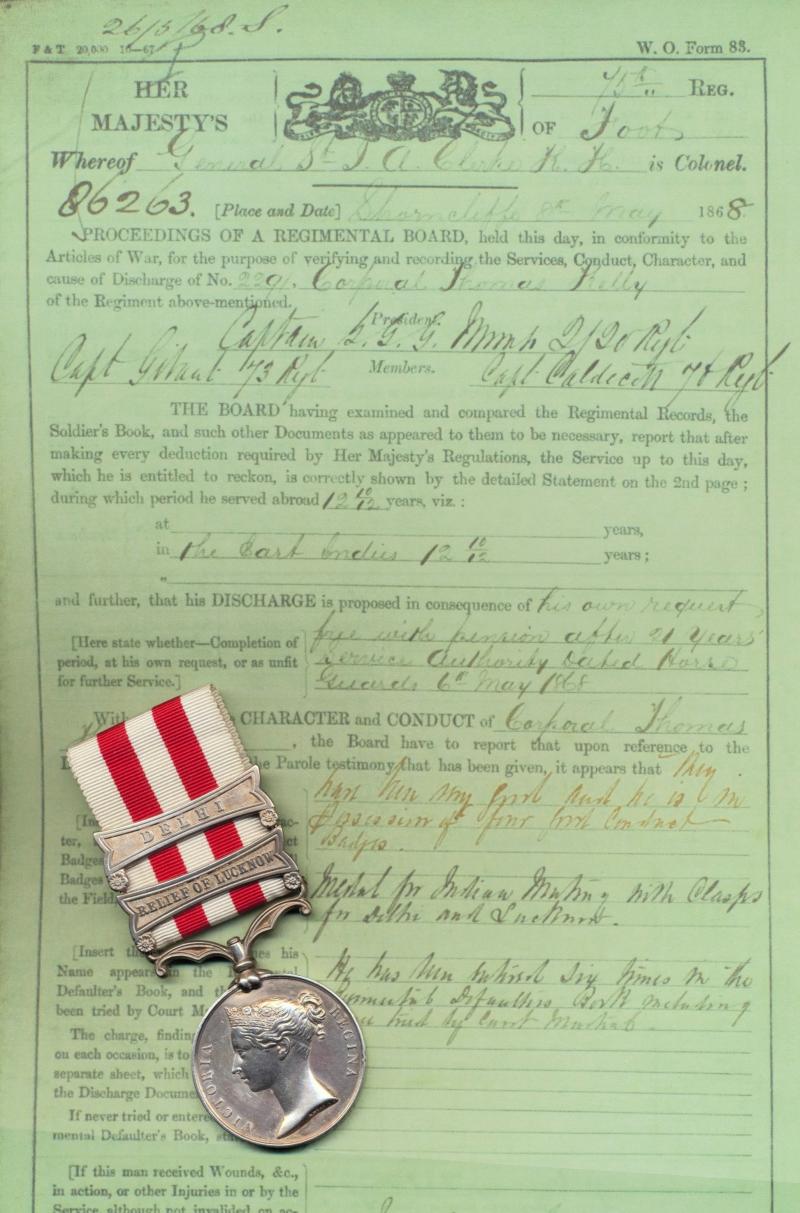 26/5/68. S.
F & T 20,000 10—67 W. O. Form 83.
HER
MAJESTY'S
75th REG.
OF Foot
Whereof General St. J. A. Clerke K. H. is Colonel.
86263. [Place and Date] Shorncliffe 8th May 1868.
PROCEEDINGS OF A REGIMENTAL BOARD, held this day, in conformity to the
Articles of War, for the purpose of verifying and recording the Services, Conduct, Character, and
cause of Discharge of No. 2291. Corporal Thomas Kelly
of the Regiment above-mentioned.
President.
Captain 2/20 Regt
Capt 73 Regt Members. Capt Caldecott Regt
THE BOARD having examined and compared the Regimental Records, the
Soldier's Book, and such other Documents as appeared to them to be necessary, report that after
making every deduction required by Her Majesty's Regulations, the Service up to this day,
which he is entitled to reckon, is correctly shown by the detailed Statement on the 2nd page ;
during which period he served abroad 12 10/12 years, viz. :
at years,
in the East Indies 12 10/12 years ;
"
and further, that his DISCHARGE is proposed in consequence of his own request
[Here state whether—Completion of
period, at his own request, or as unfit
for further Service.]
free with pension after 21 Years'
Service Authority Dated Horse
Guards 6th May 1868
With CHARACTER and CONDUCT of Corporal Thomas
, the Board have to report that upon reference to the
the Parole testimony that has been given, it appears that they
have been very good and he is in
possession of four good Conduct
Badges.
ter,
Badges
Badges
the Field
Medal for Indian Mutiny with Clasps
for Delhi and Lucknow.
[Insert his
Name appears in the
Defaulter's Book, and
been tried by Court
He has been entered six times in the
Regimental Defaulters Book including
tried by Court Martial.
The charge, finding
on each occasion, is to
separate sheet, which
the Discharge
If never tried or entered
mental Defaulter's Book,
[If this man received Wounds, &c.,
in action, or other Injuries in or by the
Service, although not invalided on
DELHI
RELIEF OF LUCKNOW
VICTORIA REGINA